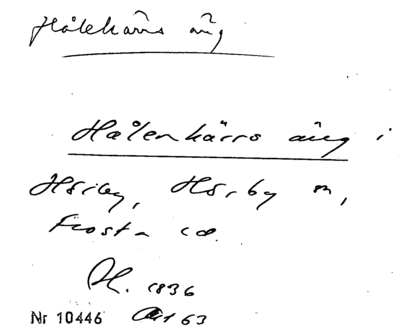 Hålekärrs äng
Hålenkärrs äng i
Hörby, Hörby sn,
Frosta hd.
AK. 1836
Nr 10446 Akt 63